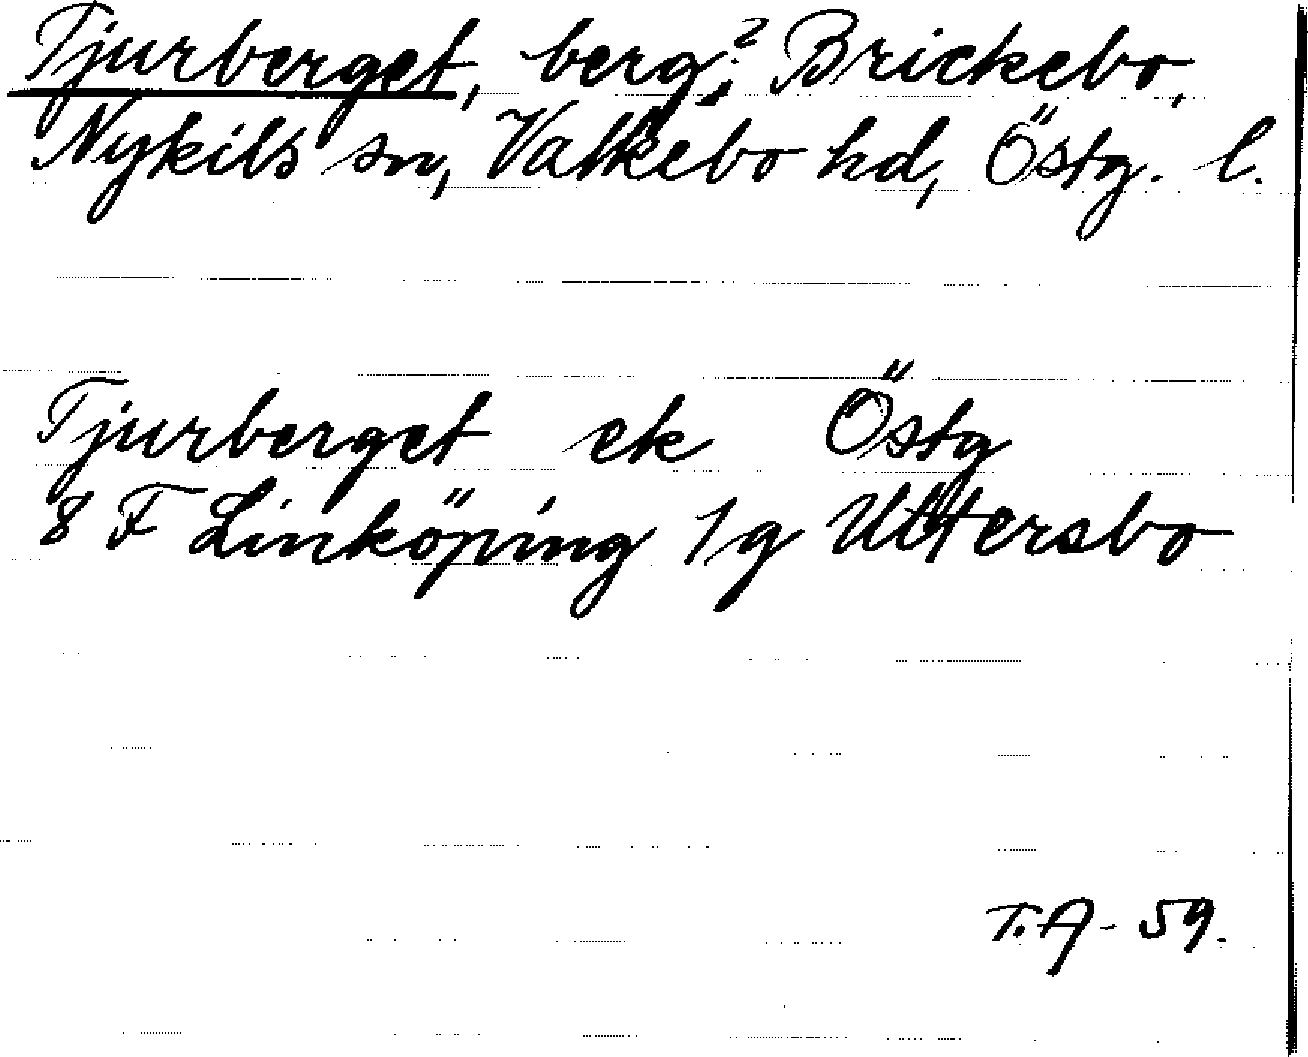 Tjurberget, berg,? Brickebo,
Nykils sn, Valkebo hd, Östg. l.
Tjurberget ek Östg
8 F Linköping 1g Uttersbo
T.A - 59.